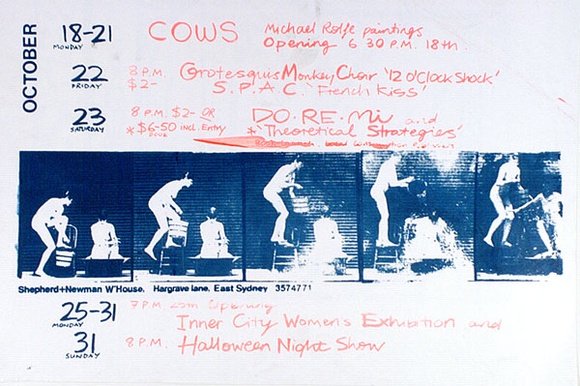 OCTOBER
18-21 COWS Michael Rolfe paintings
MONDAY Opening 6 30 P.M. 18th
22 8 P.M. Grotesquis Monkey Choir '12 O'Clock Shock'
FRIDAY $2- S.P.A.C. 'French Kiss'
23 8 P.M. $2- OR DO·RE·Mi and
SATURDAY * $6-50 INCL. Entry * 'Theoretical Strategies'
BOOK
Shepherd+Newman W'House. Hargrave lane. East Sydney 3574771
25-31 7 P.M. Opening
MONDAY Inner City Women's Exhibition and
31 8 P.M. Halloween Night Show
SUNDAY